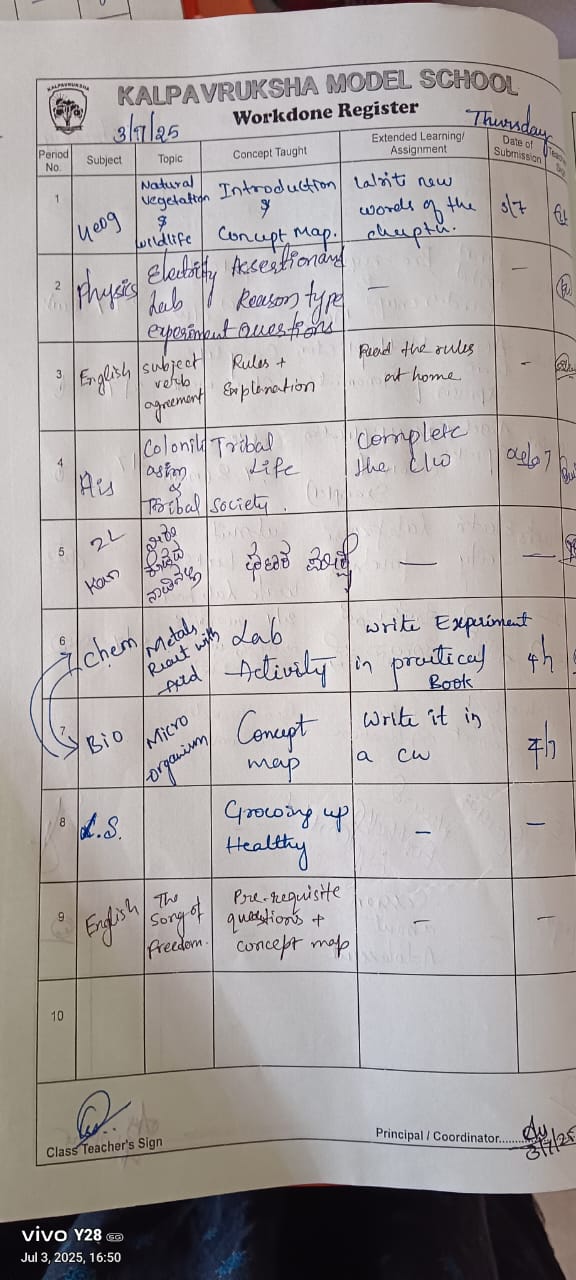 KALPAVRUKSHA
KALPAVRUKSHA MODEL SCHOOL
Workdone Register
3/7/25
Thursday
Period No. Subject Topic Concept Taught Extended Learning/ Assignment Date of Submission
1 Geog Natural vegetation & wildlife Introduction & Concept Map. Write new words of the chapter. 5/7
2 Physics Electricity Lab experiment Assertion and Reason type questions — —
3 English subject verb agreement Rules + Explanation Read the rules at home -
4 His Colonialism & Tribal society. Tribal Life Complete the CW
5 2L Kan — —
6 Chem Metals React with Acid Lab Activity write Experiment in practical Book 4/7
7 Bio Micro organism Concept map Write it in a cw 4/7
8 L.S. Growing up Healthy — —
9 English The Song of Freedom. Pre-requisite questions + concept map — —
10
Class Teacher's Sign
Principal / Coordinator.........
3/7/25
vivo Y28 5G
Jul 3, 2025, 16:50